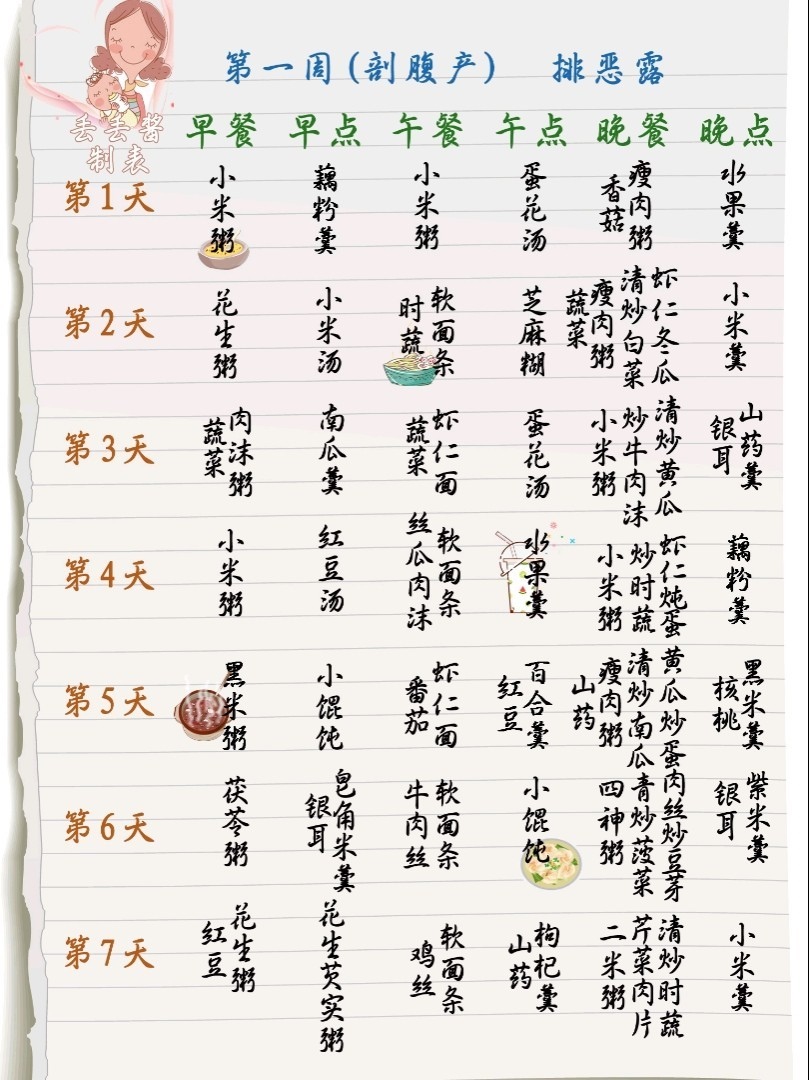 第一周(剖腹产) 排恶露
丢丢酱
制表
早餐 早点 午餐 午点 晚餐 晚点
第1天 小米粥 藕粉羹 小米粥 蛋花汤 香菇瘦肉粥 水果羹
第2天 花生粥 小米汤 时蔬软面条 芝麻糊 蔬菜瘦肉粥 清炒白菜 虾仁冬瓜 小米羹
第3天 蔬菜肉沫粥 南瓜羹 蔬菜虾仁面 蛋花汤 小米粥 炒牛肉沫 清炒黄瓜 银耳山药羹
第4天 小米粥 红豆汤 丝瓜肉沫软面条 水果羹 小米粥 炒时蔬 虾仁炖蛋 藕粉羹
第5天 黑米粥 小馄饨 番茄虾仁面 红豆百合羹 山药瘦肉粥 清炒南瓜 黄瓜炒蛋 核桃黑米羹
第6天 茯苓粥 银耳皂角米羹 牛肉丝软面条 小馄饨 四神粥 青炒菠菜 肉丝炒豆芽 银耳紫米羹
第7天 红豆花生粥 花生芡实粥 鸡丝软面条 山药枸杞羹 二米粥 芹菜肉片 清炒时蔬 小米羹